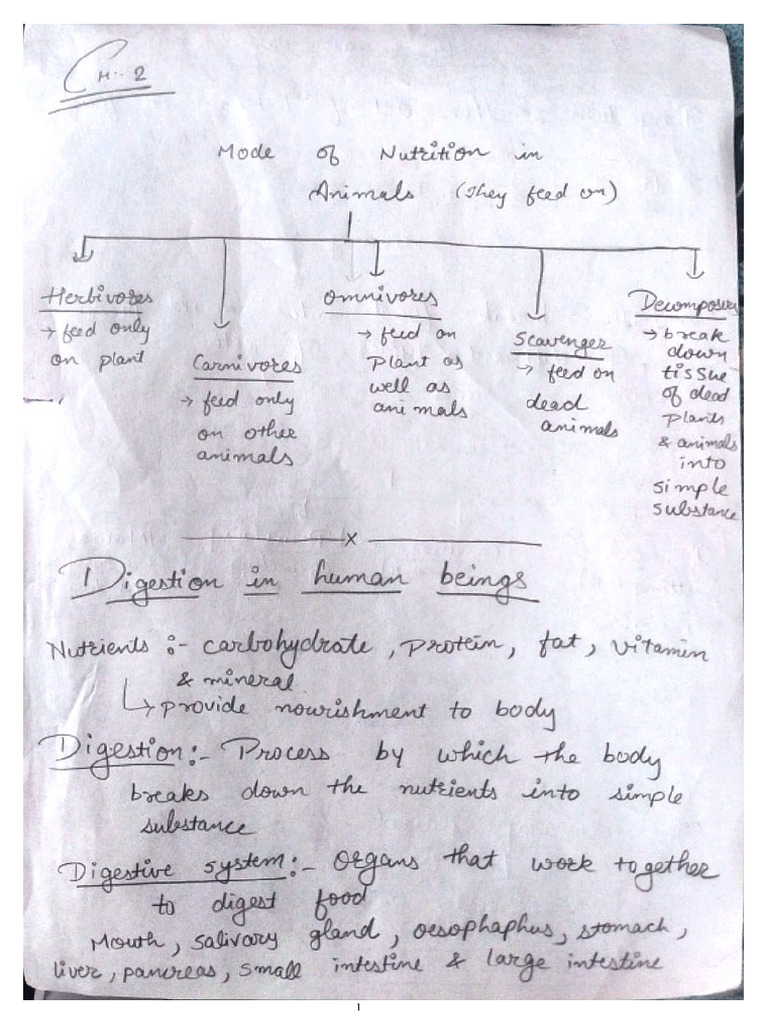 CH:- 2
Mode of Nutrition in
Animals (They feed on)
Herbivores
→ feed only
on plant
Carnivores
→ feed only
on other
animals
Omnivores
→ feed on
Plant as
well as
animals
Scavenger
→ feed on
dead
animals
Decomposers
→ break
down
tissue
of dead
plants
& animals
into
simple
substance
x
Digestion in human beings
Nutrients :- carbohydrate, protein, fat, vitamin
& mineral
↳ provide nourishment to body
Digestion:- Process by which the body
breaks down the nutrients into simple
substance
Digestive system:- Organs that work together
to digest food
Mouth, salivary gland, oesophaphus, stomach,
liver, pancreas, small intestine & large intestine
1